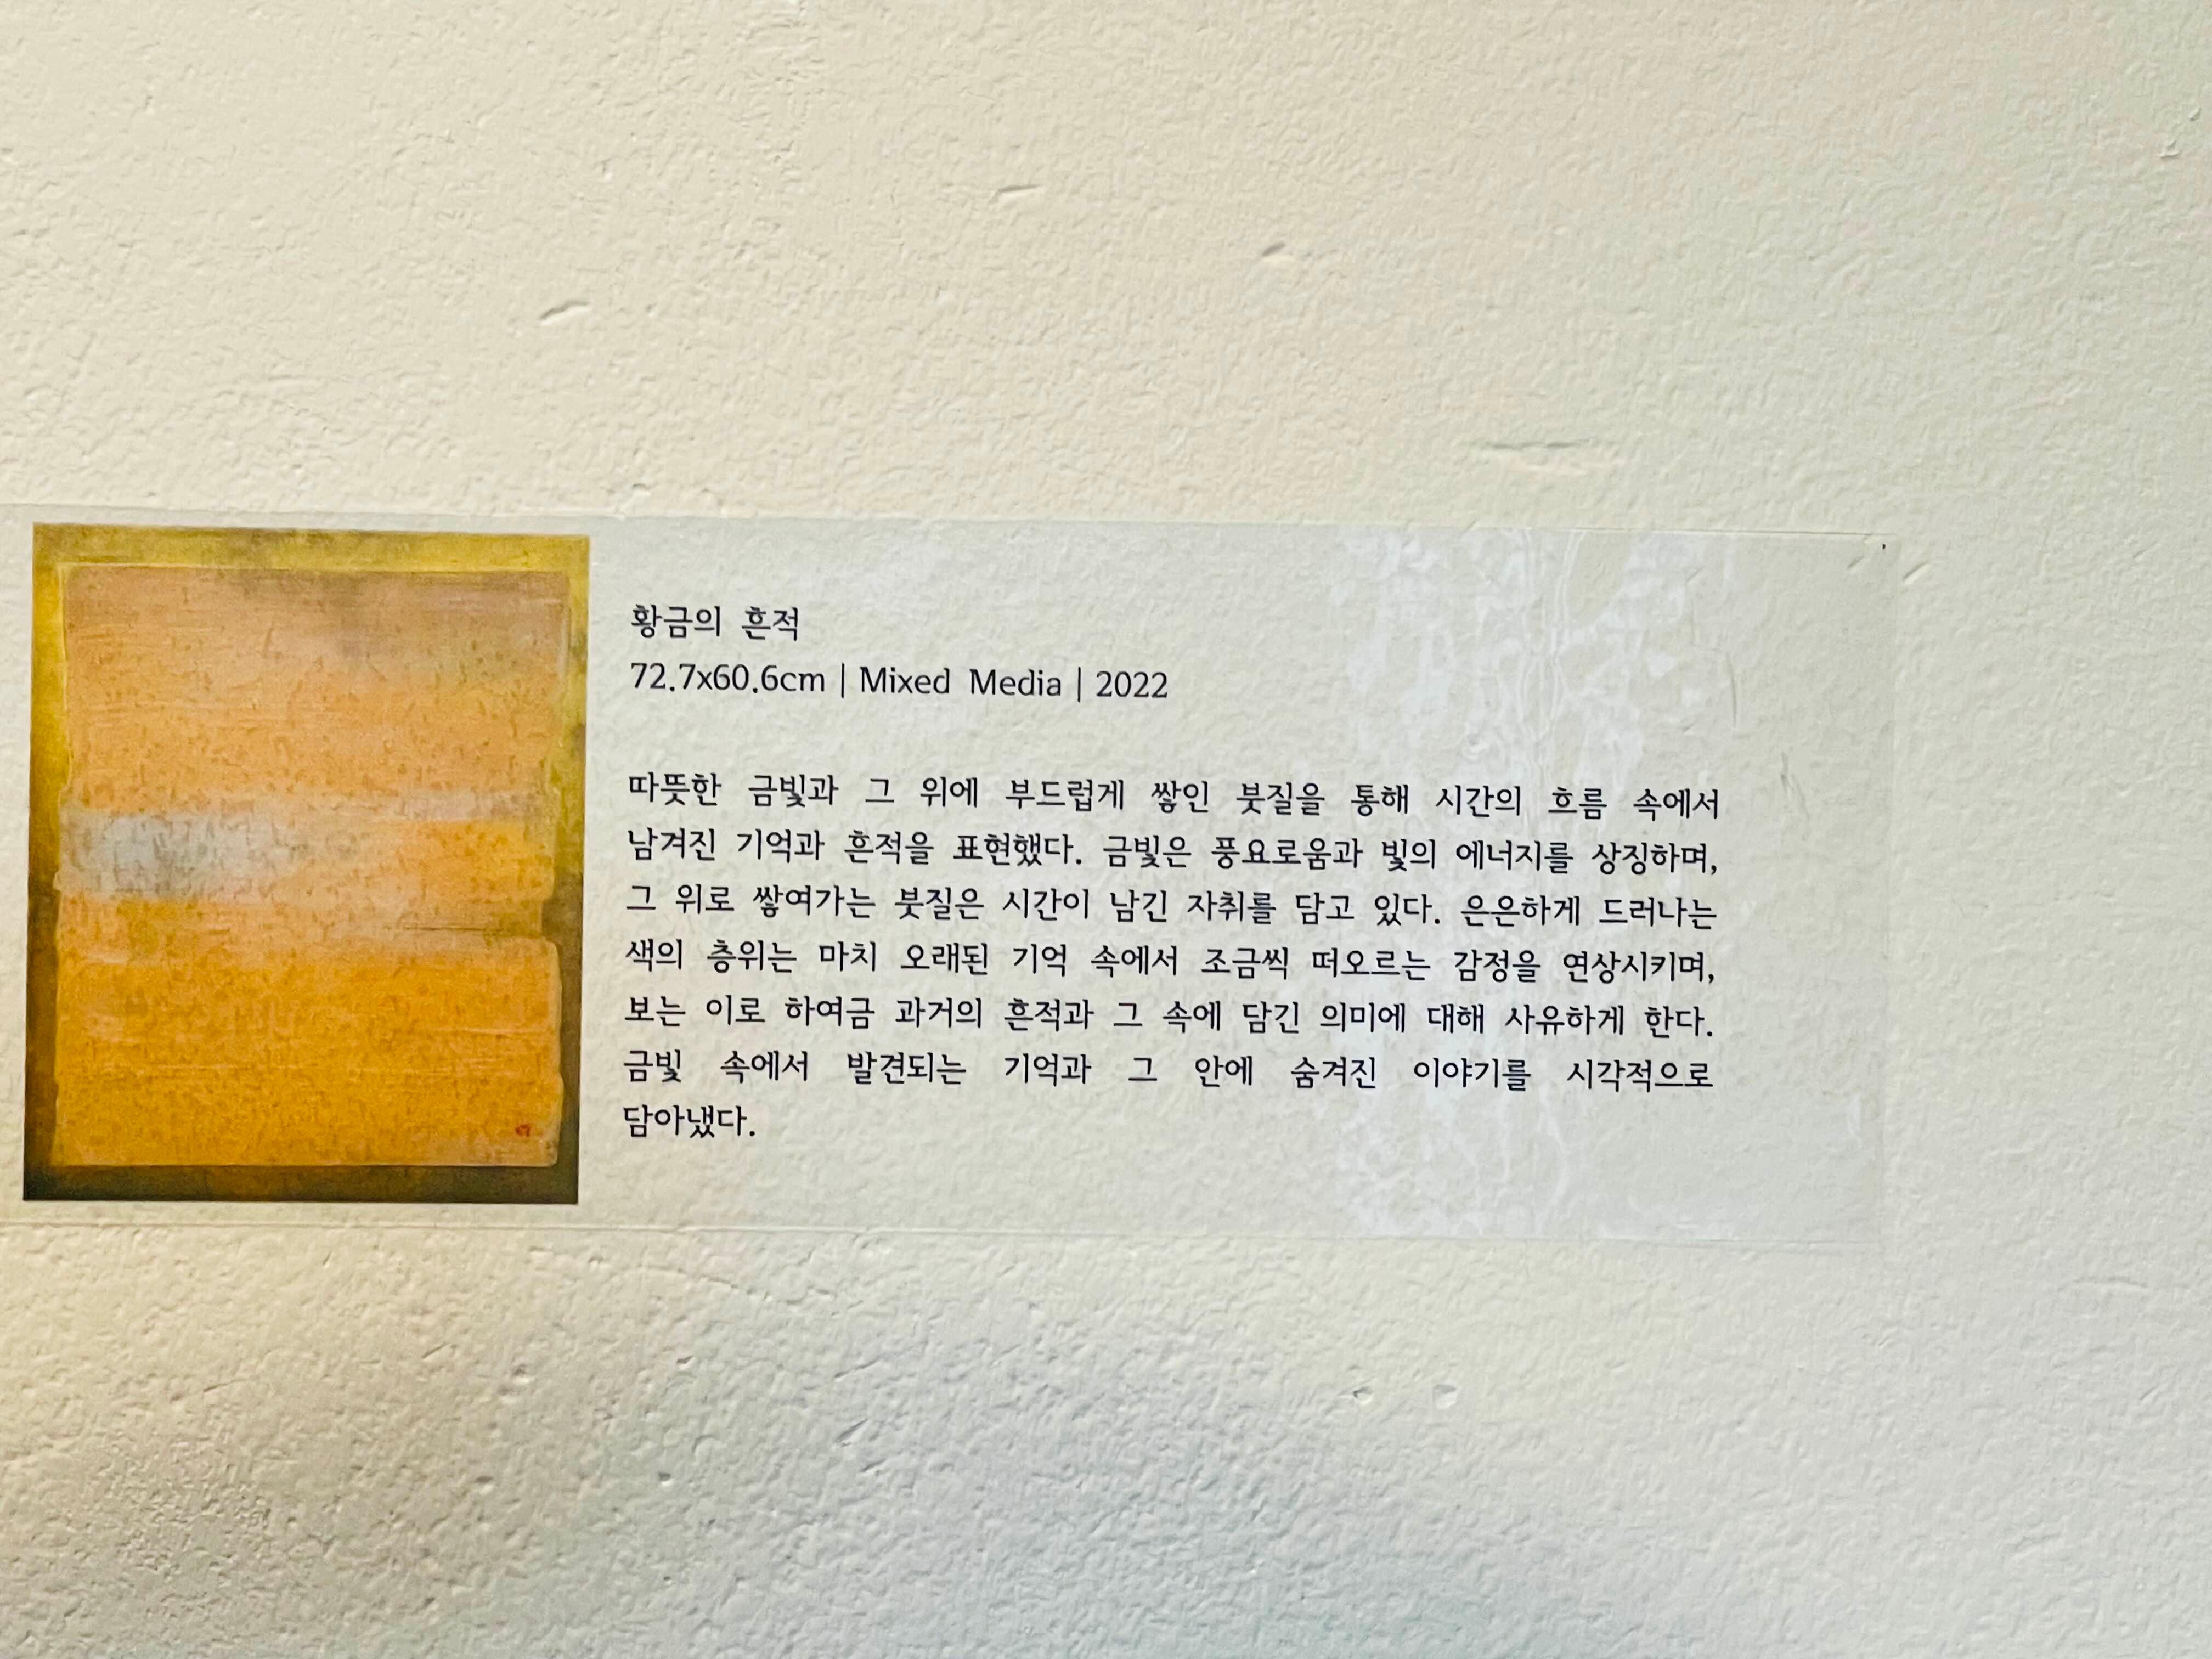 황금의 흔적
72.7x60.6cm | Mixed Media | 2022
따뜻한 금빛과 그 위에 부드럽게 쌓인 붓질을 통해 시간의 흐름 속에서
남겨진 기억과 흔적을 표현했다. 금빛은 풍요로움과 빛의 에너지를 상징하며,
그 위로 쌓여가는 붓질은 시간이 남긴 자취를 담고 있다. 은은하게 드러나는
색의 층위는 마치 오래된 기억 속에서 조금씩 떠오르는 감정을 연상시키며,
보는 이로 하여금 과거의 흔적과 그 속에 담긴 의미에 대해 사유하게 한다.
금빛 속에서 발견되는 기억과 그 안에 숨겨진 이야기를 시각적으로
담아냈다.